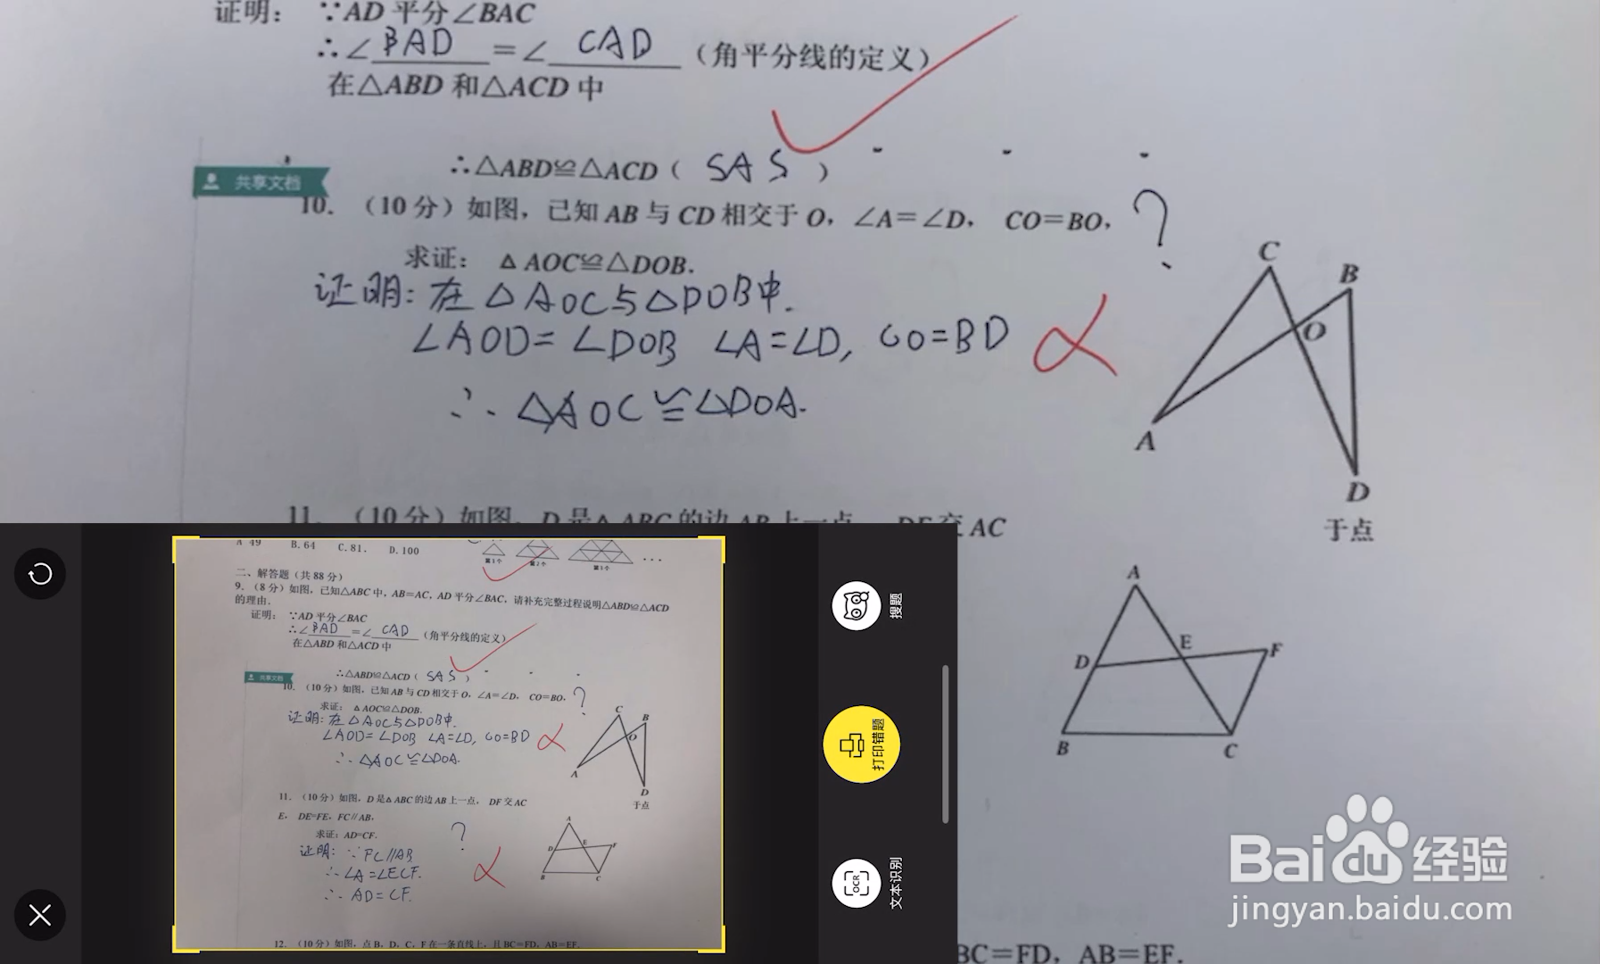 证明： ∵AD 平分∠BAC
∴∠ BAD =∠ CAD （角平分线的定义）
在△ABD 和△ACD 中
∴△ABD≌△ACD（ SAS ）
共享文档
10. （10 分）如图，已知 AB 与 CD 相交于 O，∠A=∠D， CO=BO， ?
求证： △ AOC≌△DOB.
证明: 在△AOC与△DOB中.
∠AOD=∠DOB ∠A=∠D, CO=BD
∴ △AOC≌△DOA.
C
B
O
A
D
于点
11. （10 分）如图，D 是△ ABC 的边 AB 上一点， DF 交 AC
A
D
E
F
B
C
BC=FD，AB=EF.
A 49 B.64 C.81. D.100
第1个 第2个 第3个 ...
二、解答题（共 88 分）
9. （8 分）如图，已知△ABC 中，AB=AC，AD 平分∠BAC，请补充完整过程说明△ABD≌△ACD
的理由.
证明： ∵AD 平分∠BAC
∴∠ BAD =∠ CAD （角平分线的定义）
在△ABD 和△ACD 中
∴△ABD≌△ACD（ SAS ）
共享文档
10. （10 分）如图，已知 AB 与 CD 相交于 O，∠A=∠D， CO=BO， ?
求证： △ AOC≌△DOB.
证明: 在△AOC与△DOB中.
∠AOD=∠DOB ∠A=∠D, CO=BD
∴ △AOC≌△DOA.
C
B
O
A
D
于点
11. （10 分）如图，D 是△ ABC 的边 AB 上一点， DF 交 AC
E， DE=FE，FC∥AB，
求证：AD=CF. ?
证明: ∵ FC//AB
∴ ∠A=∠ECF.
∴ AD=CF.
A
D
E
F
B
C
12. （10 分）如图，点 B、D、C、F 在一条直线上，且 BC=FD，AB=EF.
搜题
打印错题
OCR
文本识别
Baidu经验
jingyan.baidu.com